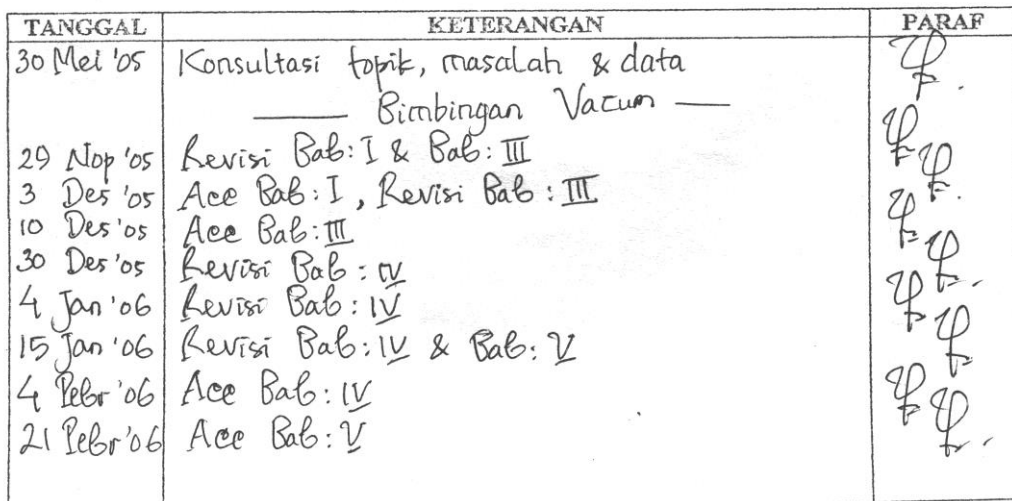 TANGGAL KETERANGAN PARAF
30 Mei '05 Konsultasi topik, masalah & data
Bimbingan Vacum
29 Nop '05 Revisi Bab: I & Bab: III
3 Des '05 Acc Bab: I, Revisi Bab: III
10 Des '05 Acc Bab: III
30 Des '05 Revisi Bab: IV
4 Jan '06 Revisi Bab: IV
15 Jan '06 Revisi Bab: IV & Bab: V
4 Pebr '06 Acc Bab: IV
21 Pebr '06 Acc Bab: V